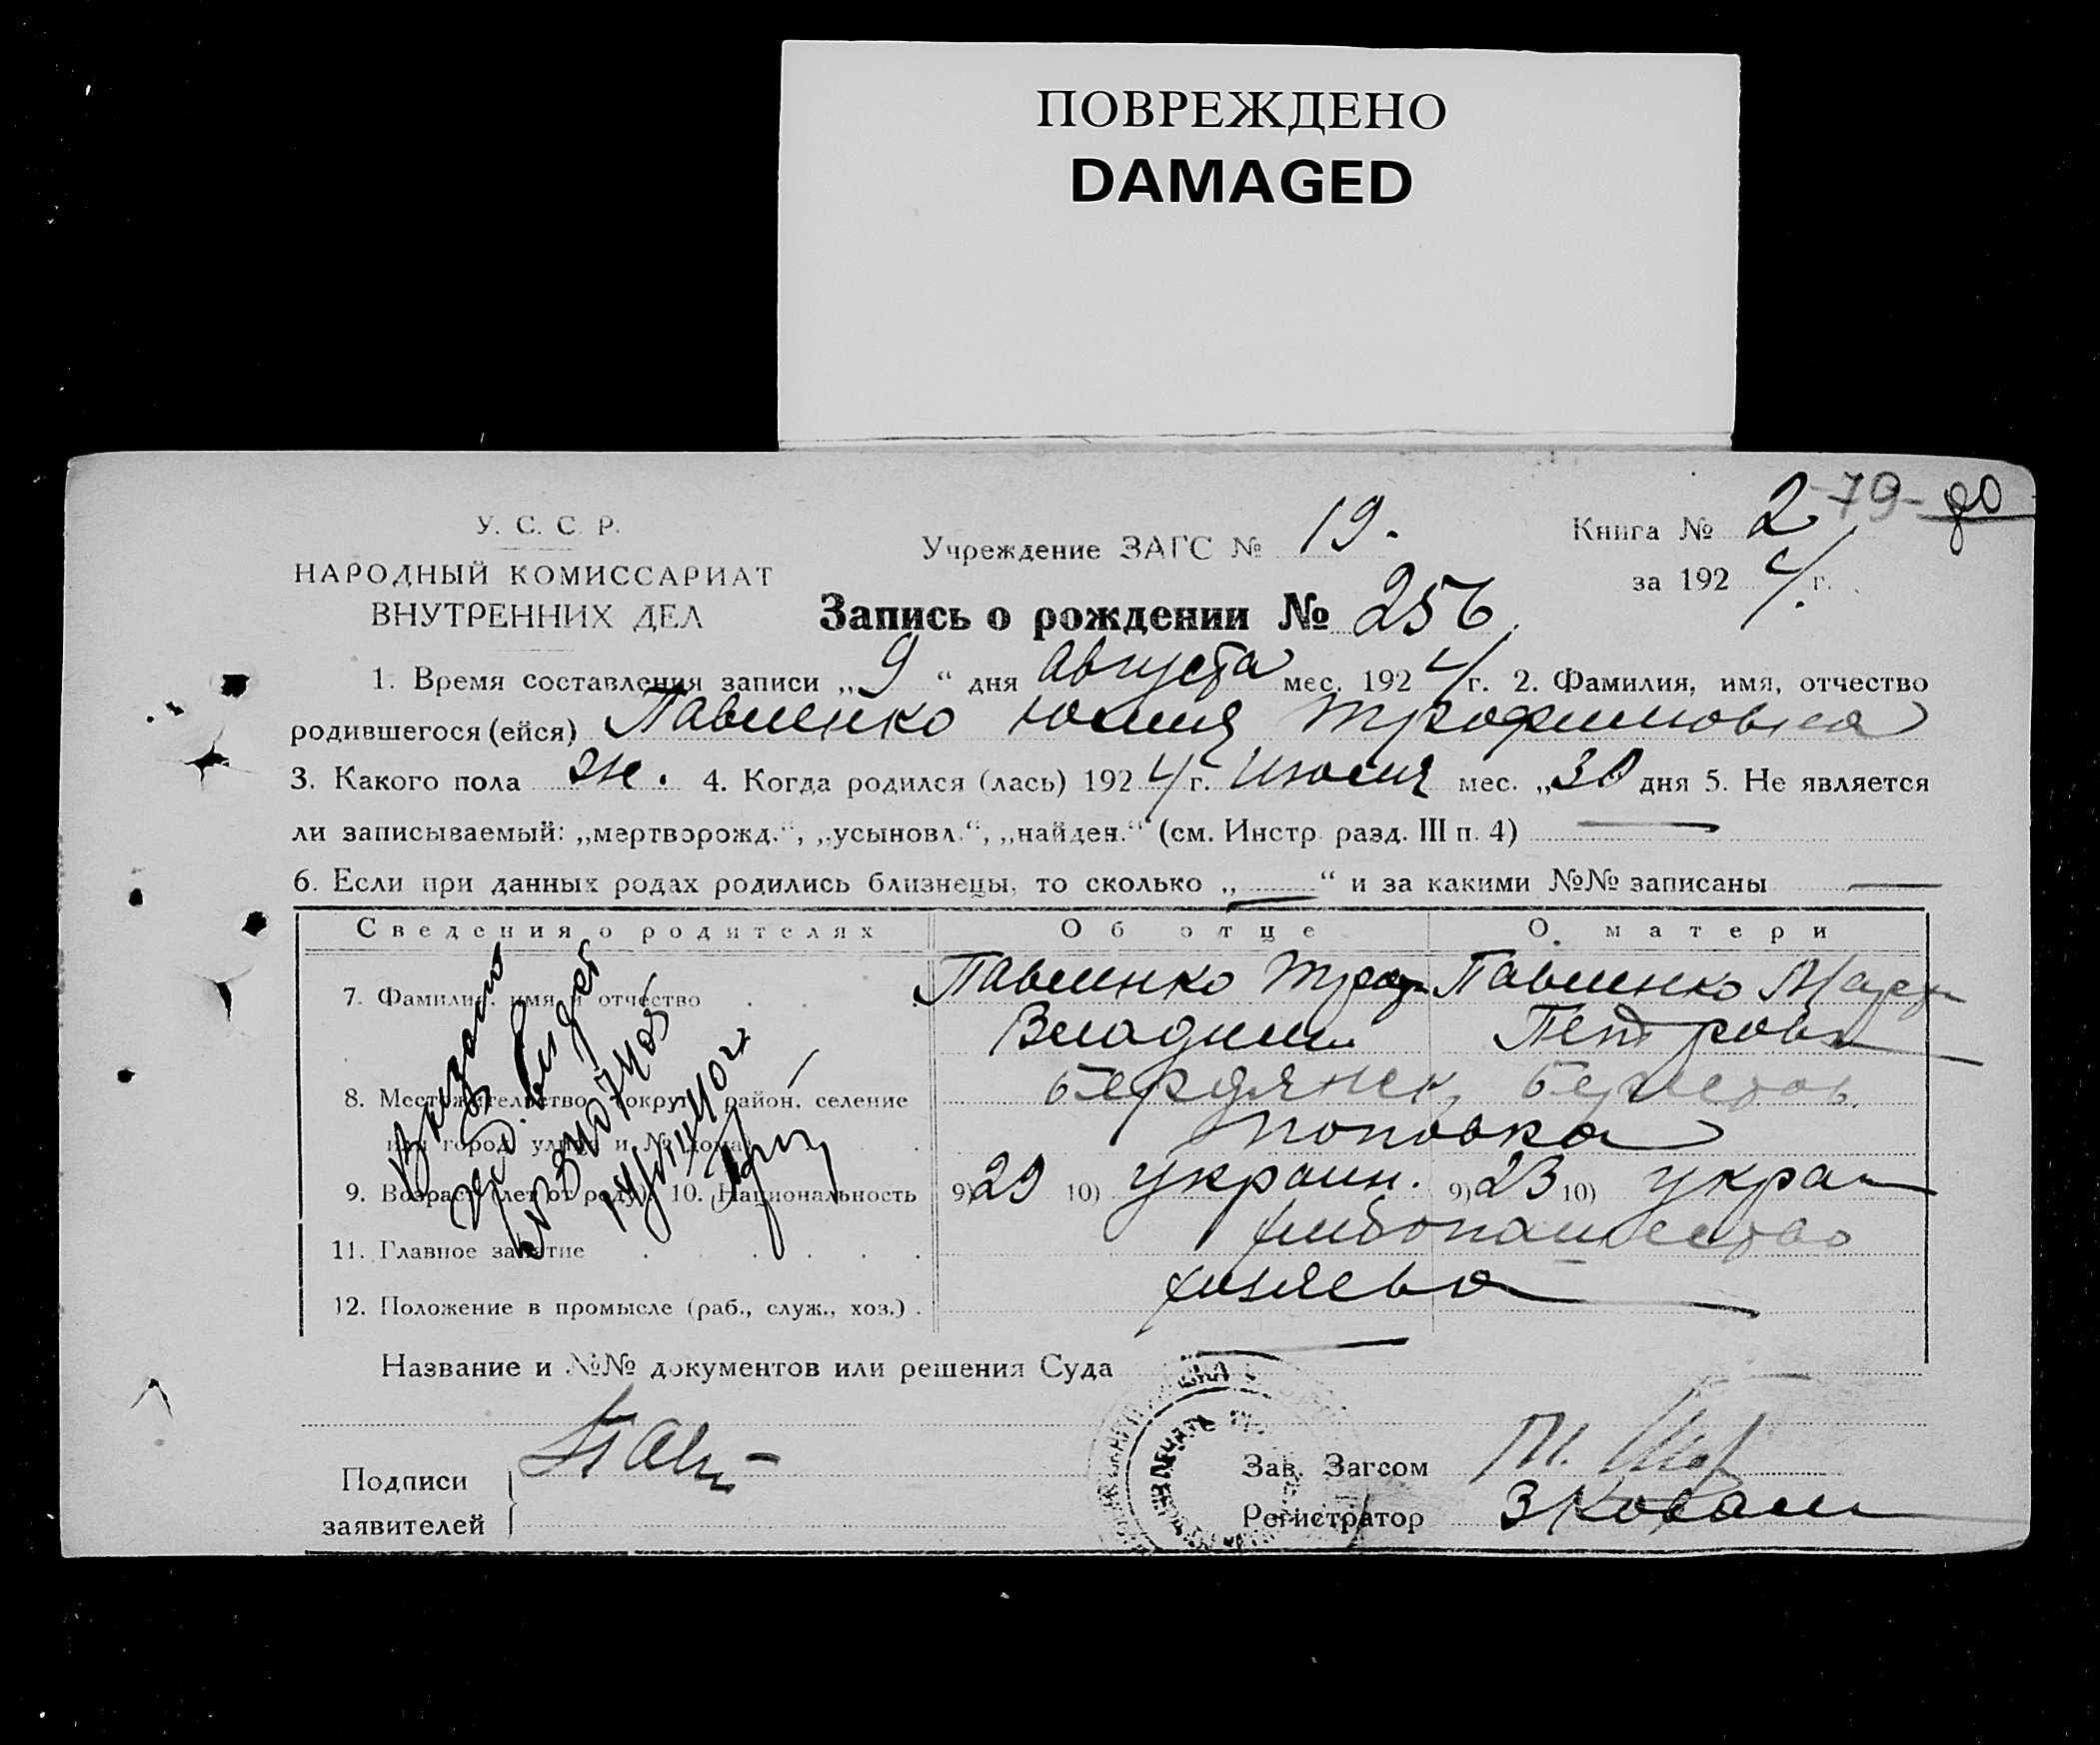 ПОВРЕЖДЕНО
DAMAGED
2 79- 80
У. С. С. Р.
НАРОДНЫЙ КОМИССАРИАТ
ВНУТРЕННИХ ДЕЛ
Учреждение ЗАГС № 19.
Книга № 2
за 1924 г.
Запись о рождении № 256
1. Время составления записи „9“ дня Августа мес. 1924 г. 2. Фамилия, имя, отчество
родившегося (ейся) Павленко Юлия Трофимовна
3. Какого пола ж. 4. Когда родился (лась) 1924 г. Июля мес. „30 дня 5. Не является
ли записываемый: „мертворожд.“, „усыновл.“, „найден.“ (см. Инстр. разд. III п. 4) —
6. Если при данных родах родились близнецы, то сколько „—“ и за какими №№ записаны —
Сведения о родителях Об отце О матери
7. Фамилия, имя и отчество Павленко Троф Павленко Мар
Владим. Петровн
8. Местожительство округ, район, селение Бердянск, Берестов.
или город, улица и № дома Поповка
9. Возраст (лет от роду) 10. Национальность 9) 29 10) украин. 9) 23 10) укра
11. Главное занятие хлебопашество
12. Положение в промысле (раб., служ., хоз.) хозяева
Название и №№ документов или решения Суда —
Подписи
заявителей
Пав
Зав. Загсом
Регистратор З Ковал